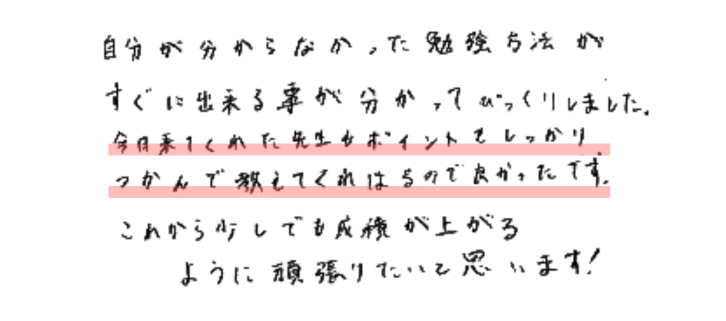 自分が分からなかった勉強方法が
すぐに出来る事が分かってびっくりしました。
今日来てくれた先生もポイントをしっかり
つかんで教えてくれはるので良かったです。
これから少しでも成績が上がる
ように頑張りたいと思います!